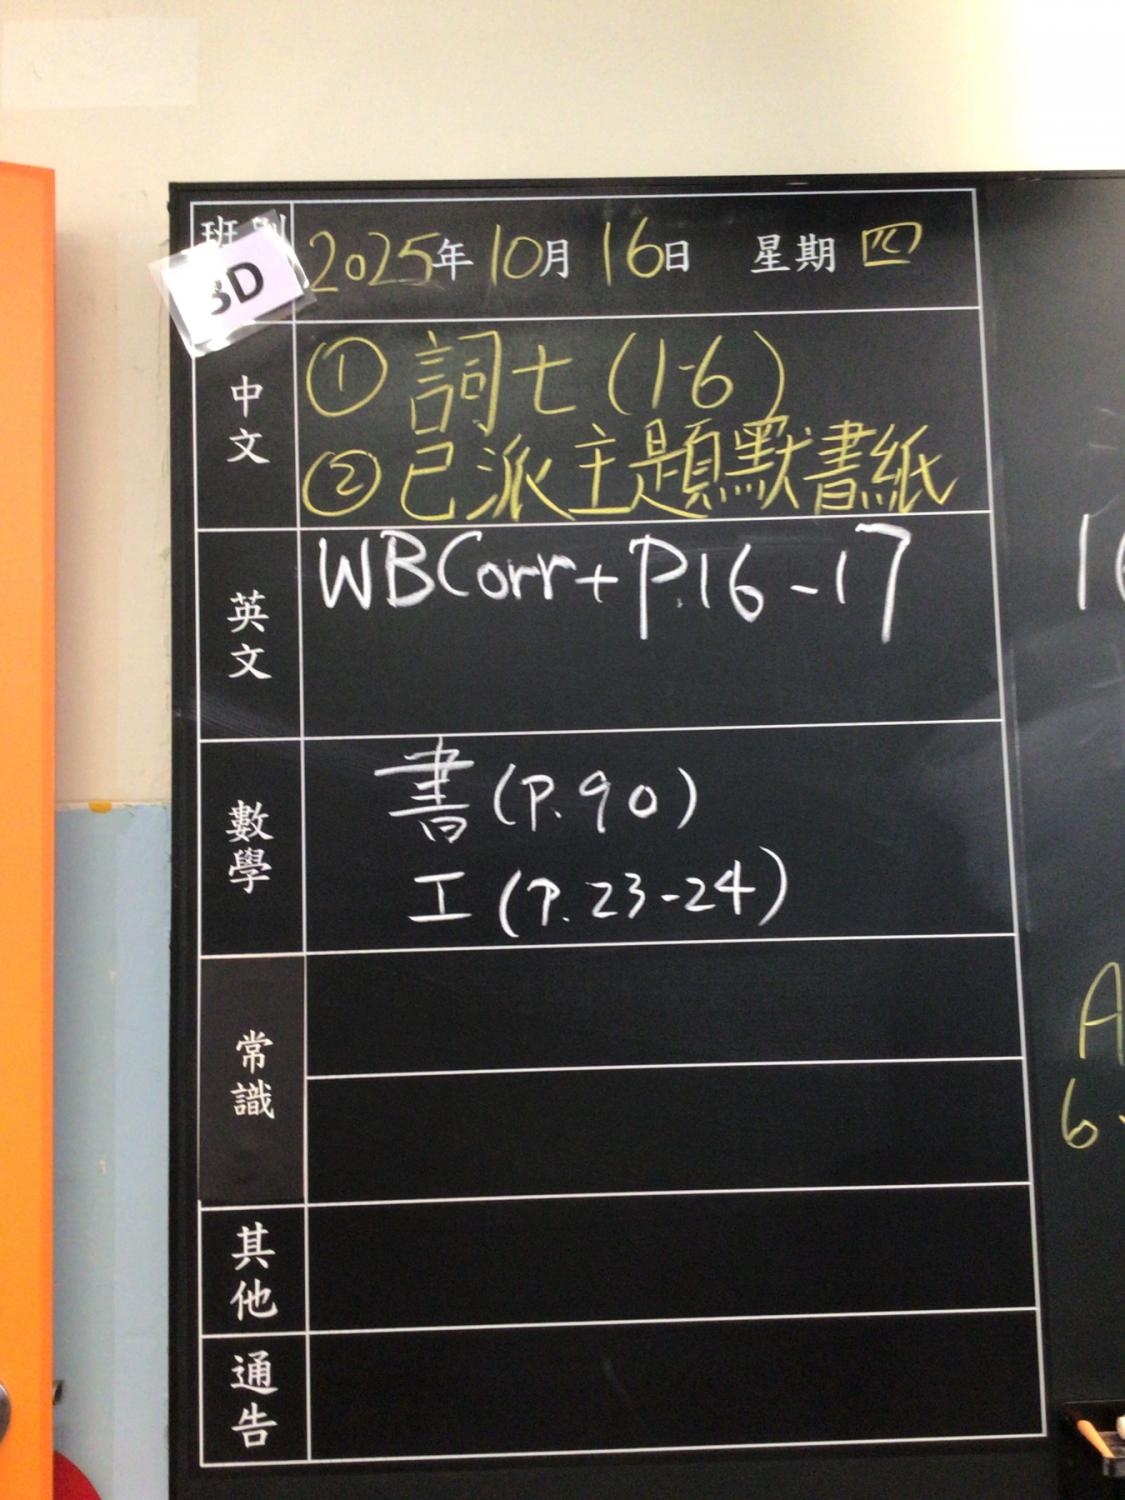 班別
3D
2025年 10月 16日 星期 四
中文
① 詞七 (1-6)
② 已派主題默書紙
英文
WB Corr + P.16 - 17
數學
書 (P. 90)
工 (P. 23-24)
常識
其他
通告